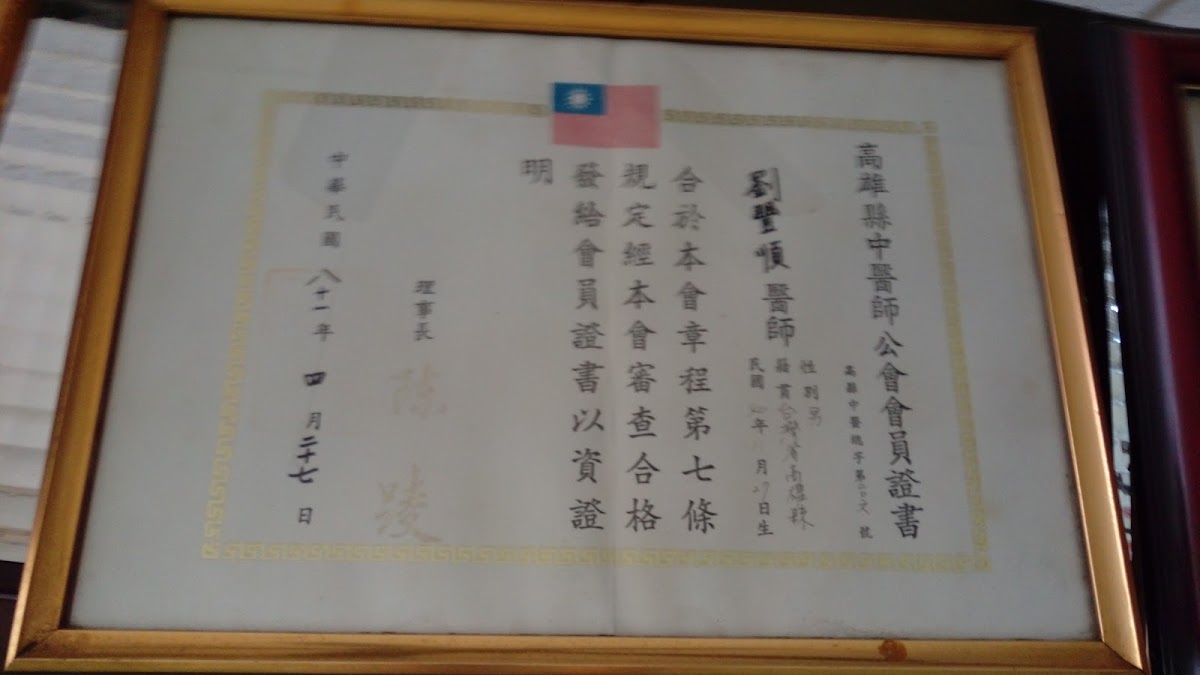 高雄縣中醫師公會會員證書
高縣中醫總字第 號
劉豐順醫師
性別男
籍貫台灣省高雄縣
民國 年 月 日生
合於本會章程第七條
規定經本會審查合格
發給會員證書以資證
明
理事長 陳
中華民國八十一年四月二十七日